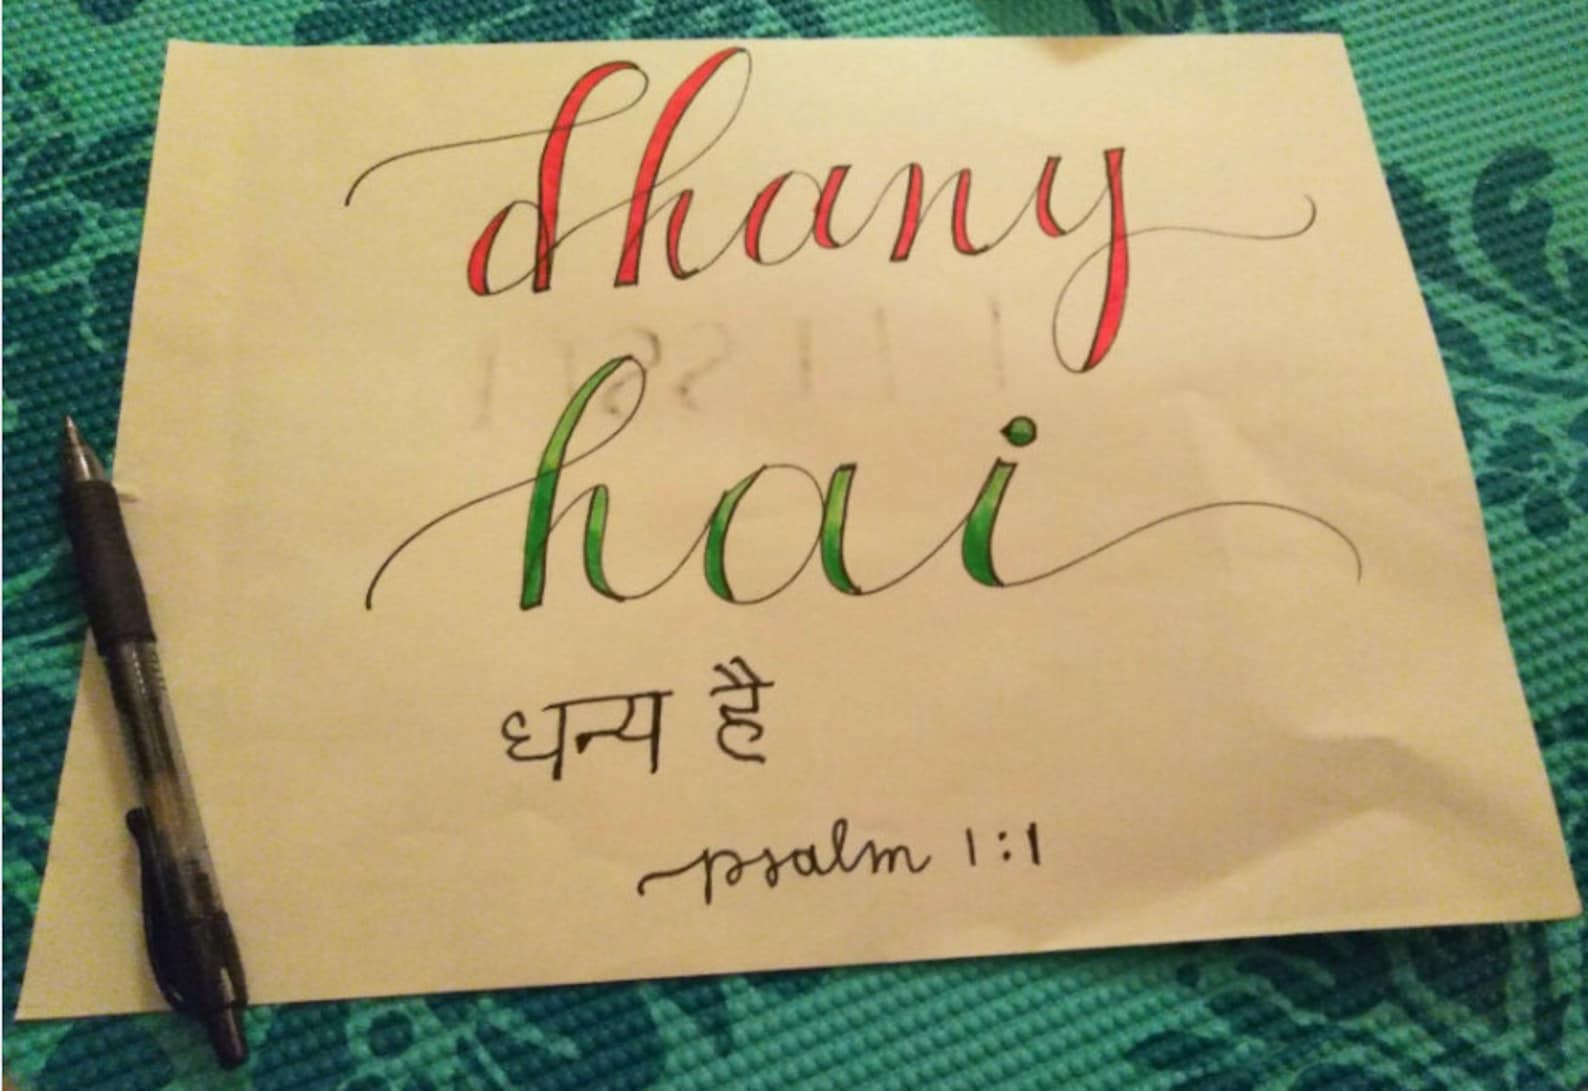 dhany
hai
धन्य है
psalm 1:1